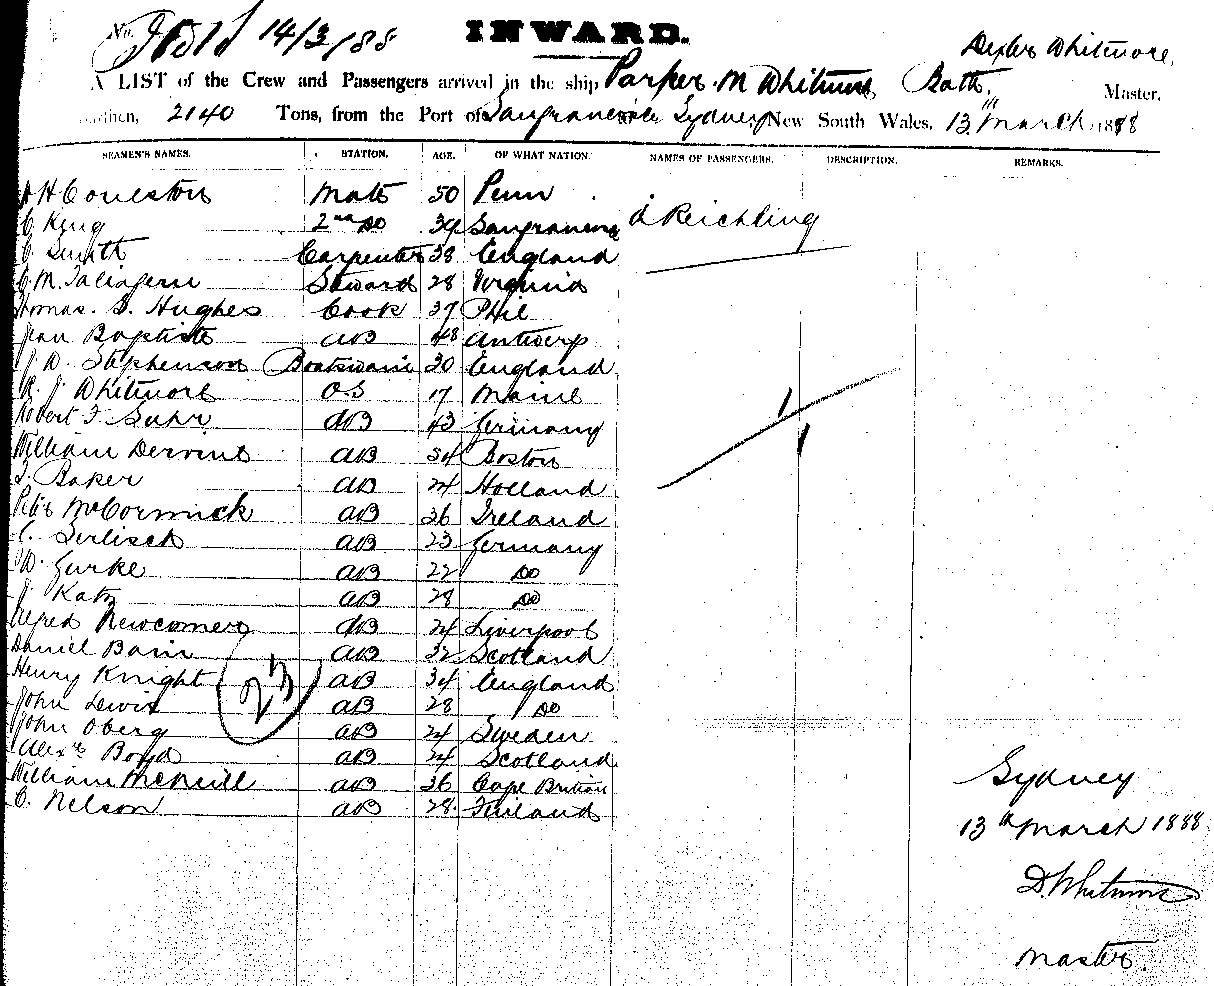 No. 14/3/88 INWARD. Dexter Whitmore,
A LIST of the Crew and Passengers arrived in the ship Parker M Whitmore Bath, Master,
Burthen, 2140 Tons, from the Port of to Sydney, New South Wales, 13th March 1888
SEAMEN'S NAMES. STATION. AGE. OF WHAT NATION. NAMES OF PASSENGERS. DESCRIPTION. REMARKS.
H Coulston Mate 50 Penn
C King 2nd Do 39 A Reichling
C. Smith Carpenter 38 England
C. M. Taliaferri Steward 28 Virginia
Thomas. S. Hughes Cook 37 Phil
Jean Baptiste AB 48 Antwerp
J. D. Stephenson Boatswain 30 England
R. J. Whitmore OS 17 Maine
Robert F. Suhr AB 43 Germany
William Dervint AB 34 Boston
Baker AB 24 Holland
Peter McCormick AB 36 Ireland
C. Gerlisch AB 23 Germany
W. Gurke AB 22 Do
J. Katz AB 28 Do
Alfred Newcomer AB 24 Liverpool
Daniel Bain AB 32 Scotland
Henry Knight AB 34 England
23
John Lewis AB 28 Do
John Oberg AB 24 Sweden
Alexr Boyd AB 24 Scotland
William McNeill AB 36 Cape Briton
C. Nelson AB 28 Finland
Sydney
13th March 1888.
D. Whitmore
Master